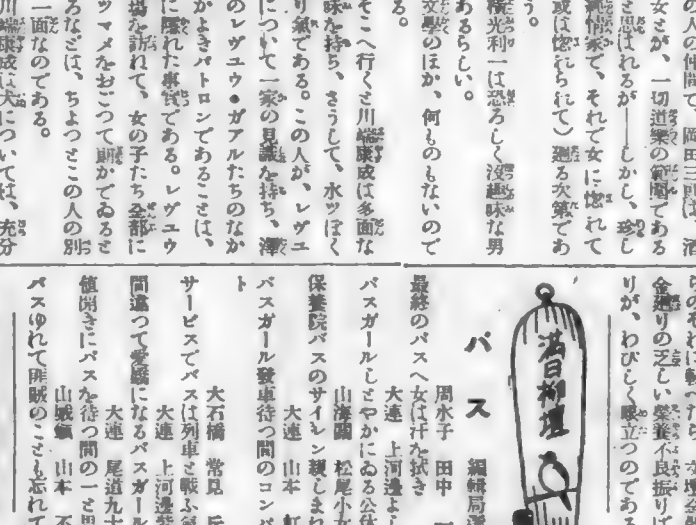 の人の仲間で岡田三郎は、酒
女とが、一切道樂の範圍である
と思はれるが――しかし、珍し
純情家で、それで女に惚れて
或は惚れられて)廻る次第であ
う。
横光利一は恐ろしく沒趣味な男
あるらしい。
文學のほか、何ものもないので
る。
そこへ行くと川端康成は多面な
味を持ち、さうして、水ツぽく
り氣である。この人が、レヴユ
について一家の見識を持ち、澤
のレヴユウ・ガアルたちのなか
かよきパトロンであることは、
に隱れた事實である。レヴユウ
場を訪れて、女の子たち全部に
ツマメをおごつて靜かでゐると
ろなどは、ちよつとこの人の別
一面なのである。
川端康成は犬については、充分
金廻りの乏しい榮養不良振りば
りが、わびしく腰立つのであ
滿日柳壇
バス 編輯局選
周水子 田中
最終のバスへ女は汗を拭き
大連 上河邊よし
バスガールしとやかにゐる公休
山海關 松尾小
保養院バスのサイレン親しまれ
大連 山本
バスガール發車待つ間のコンパ
ト
大石橋 常見
サービスでバスは列車と戰ふ氣
大連 上河邊紫
間違つて愛嬌になるバスガール
大連 尾道九十
値開きにバスを待つ間の一と思
山城鎭 山本 不
バスゆれて匪賊のことも忘れて